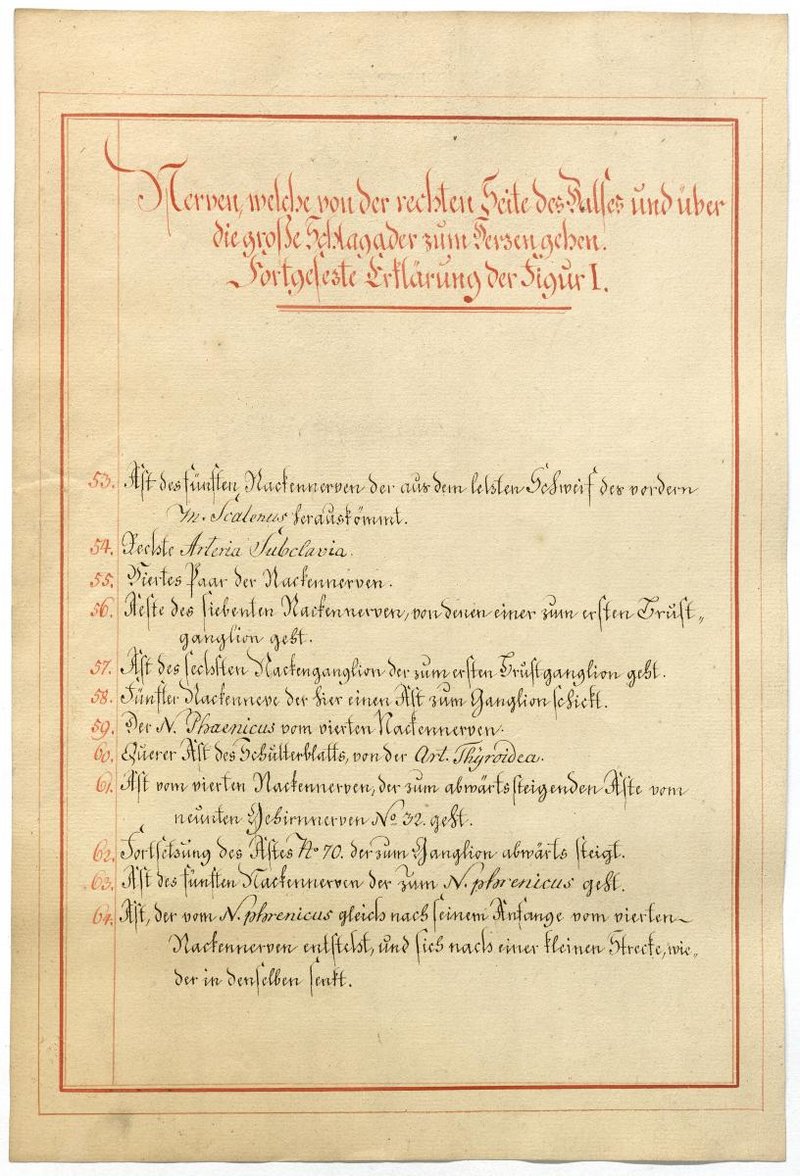 Nerven, welche von der rechten Seite des Halses und über
die große Schlagader zum Herzen gehen.
Fortgesezte Erklärung der Figur I.
53. Ast des fünften Nackennerven der aus dem letsten Schweif des vordern
M. Scalenus herauskömmt.
54. Rechte Arteria Subclavia.
55. Viertes Paar der Nackennerven.
56. Aeste des siebenten Nackennerven, von denen einer zum ersten Brust„
ganglion geht.
57. Ast des sechsten Nackenganglion der zum ersten Brustganglion geht.
58. Fünfter Nackenneve der hier einen Ast zum Ganglion schickt.
59. Der N. Phaenicus vom vierten Nackennerven.
60. Querer Ast des Schulterblatts, von der Art. Thyroidea.
61. Ast vom vierten Nackennerven, der zum abwärtssteigenden Aste vom
neunten Gehirnnerven No 32. geht.
62. Fortsetsung des Astes No 70. der zum Ganglion abwärts steigt.
63. Ast des fünften Nackennerven der zum N. phrenicus geht.
64. Ast, der vom N. phrenicus gleich nach seinem Anfange vom vierten
Nackennerven entsteht, und sich nach einer kleinen Strecke, wie„
der in denselben senkt.